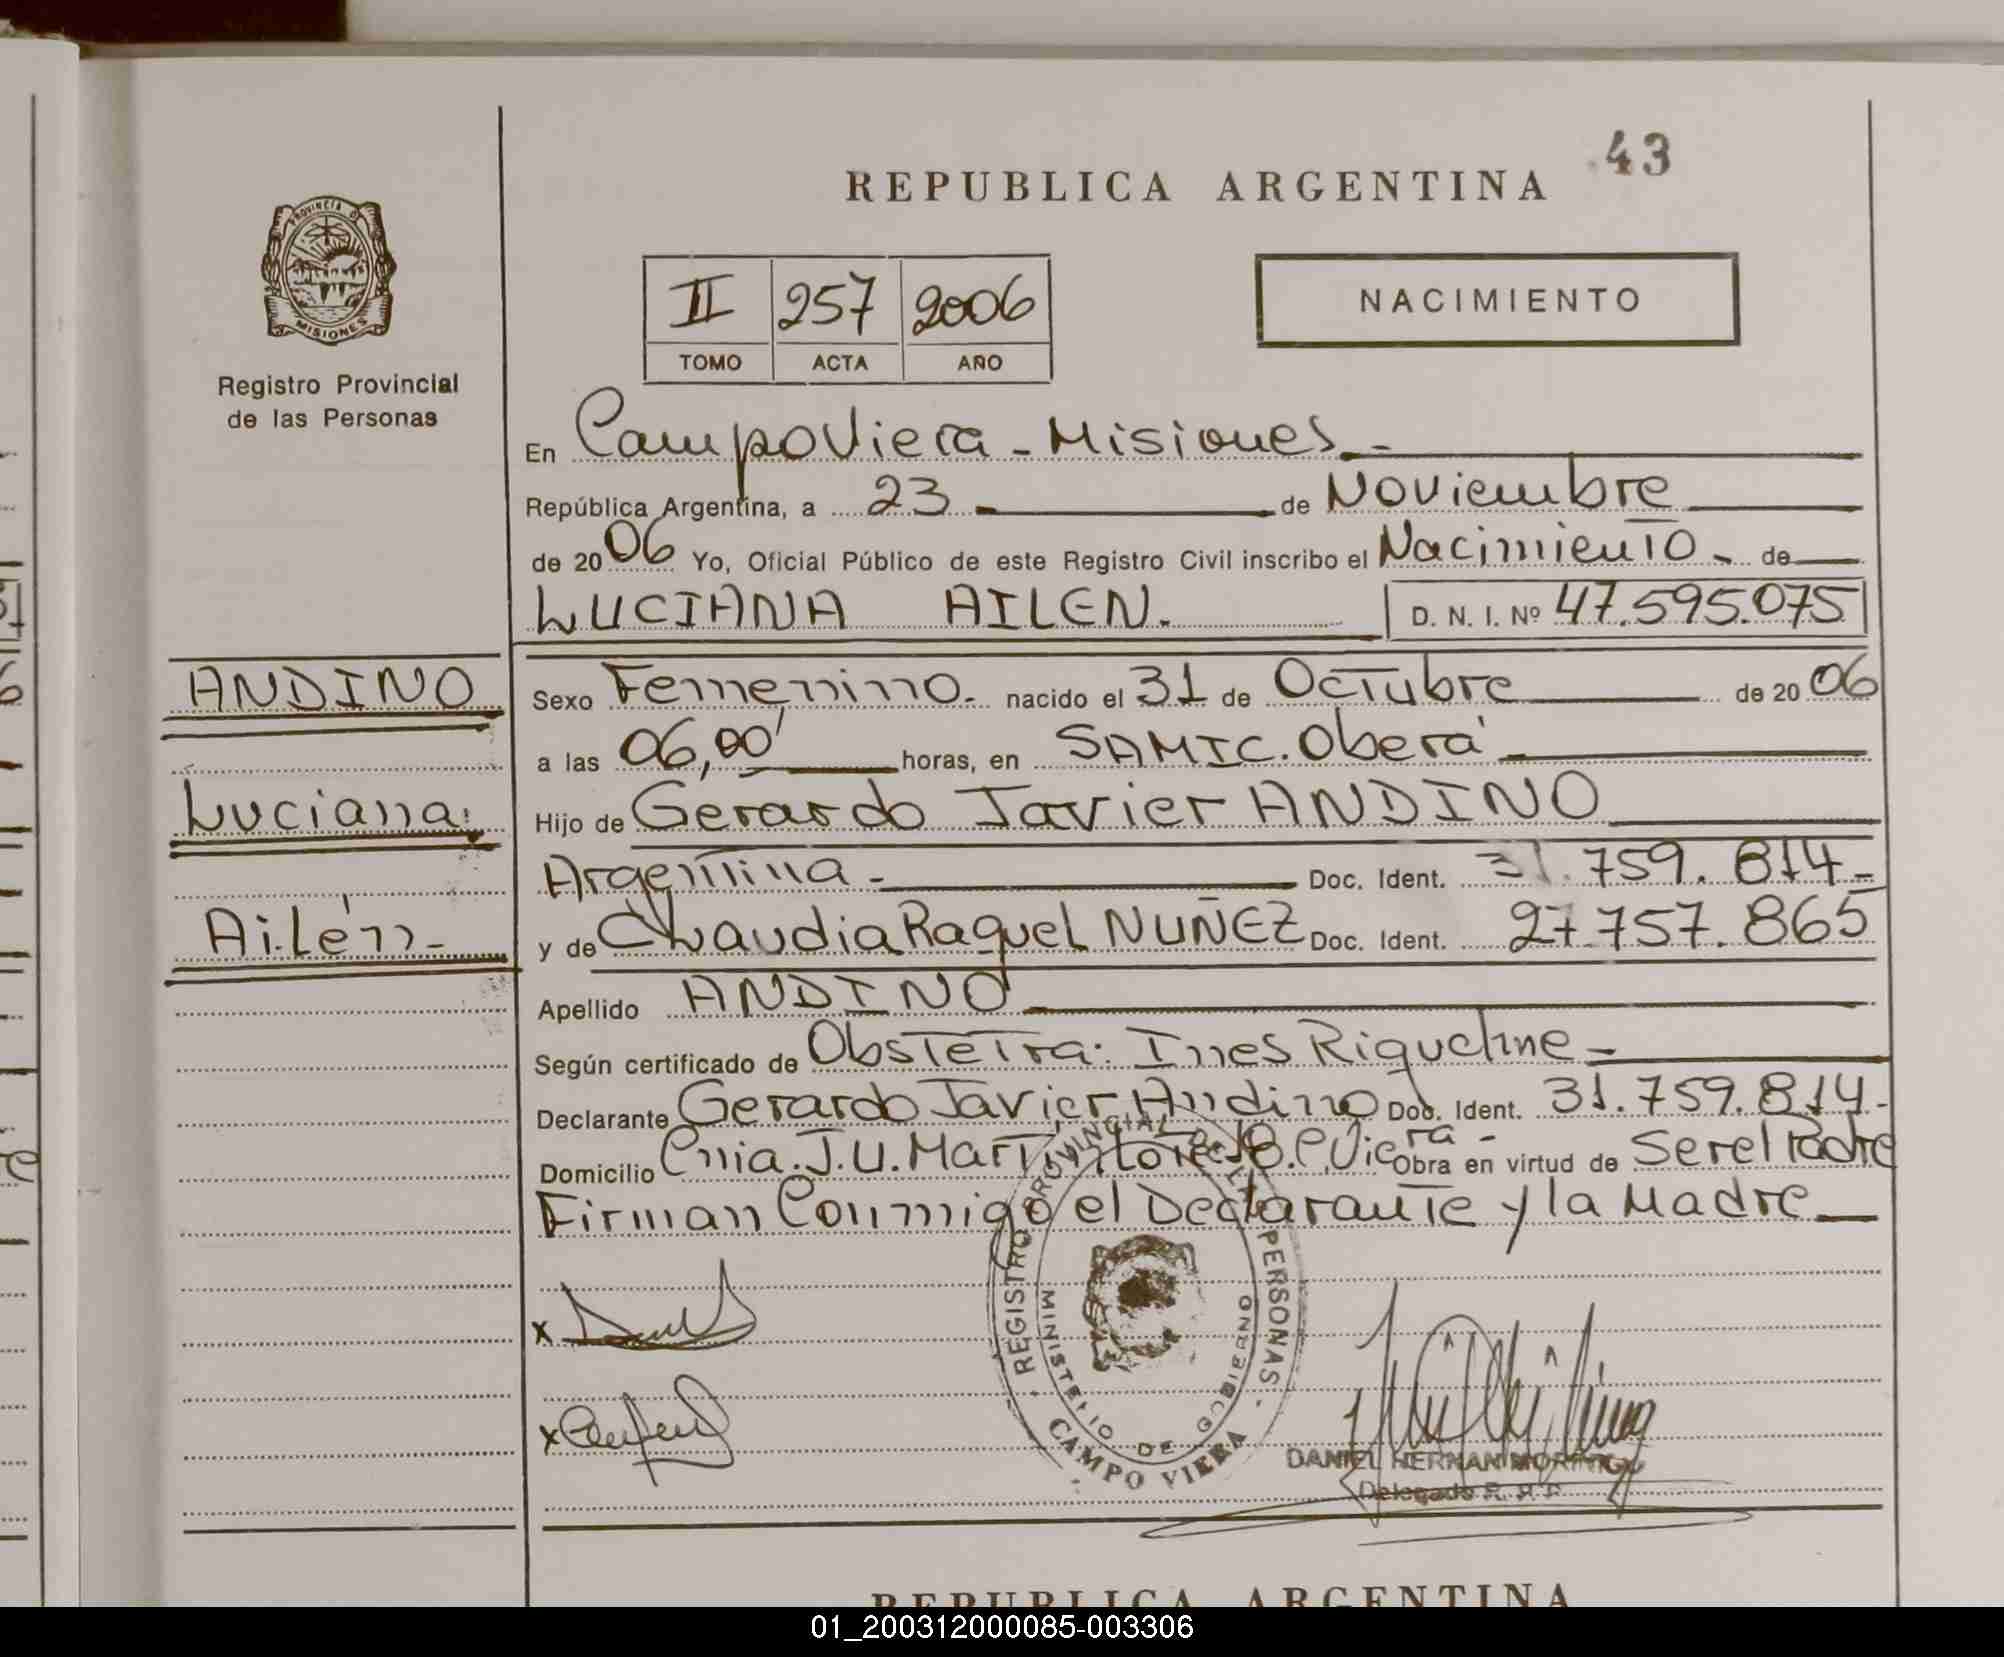 43
REPUBLICA ARGENTINA
PROVINCIA DE
MISIONES
Registro Provincial
de las Personas
II 257 2006
TOMO ACTA AÑO
NACIMIENTO
En Campo Viera - Misiones -
República Argentina, a 23 de Noviembre
de 2006 Yo, Oficial Público de este Registro Civil inscribo el Nacimiento - de
LUCIANA AILEN. D. N. I. Nº 47.595.075
ANDINO
Luciana
Ailén -
Sexo Femenino - nacido el 31 de Octubre de 2006
a las 06,00' horas, en SAMIC. Oberá -
Hijo de Gerardo Javier ANDINO
Argentina - Doc. Ident. 31.759.814 -
y de Claudia Raquel NUÑEZ Doc. Ident. 27.757.865
Apellido ANDINO
Según certificado de Obstetra: Ines Riquelme -
Declarante Gerardo Javier Andino Doc. Ident. 31.759.814 -
Domicilio Cnia. J.U. Martin C. Viera - Obra en virtud de Ser el Padre
Firman Conmigo el Declarante y la Madre
x
x
REGISTRO PROVINCIAL DE LAS PERSONAS
MINISTERIO DE GOBIERNO
CAMPO VIERA
DANIEL HERNAN MORINIGO
Delegado R. P. P.
REPUBLICA ARGENTINA
01_200312000085-003306